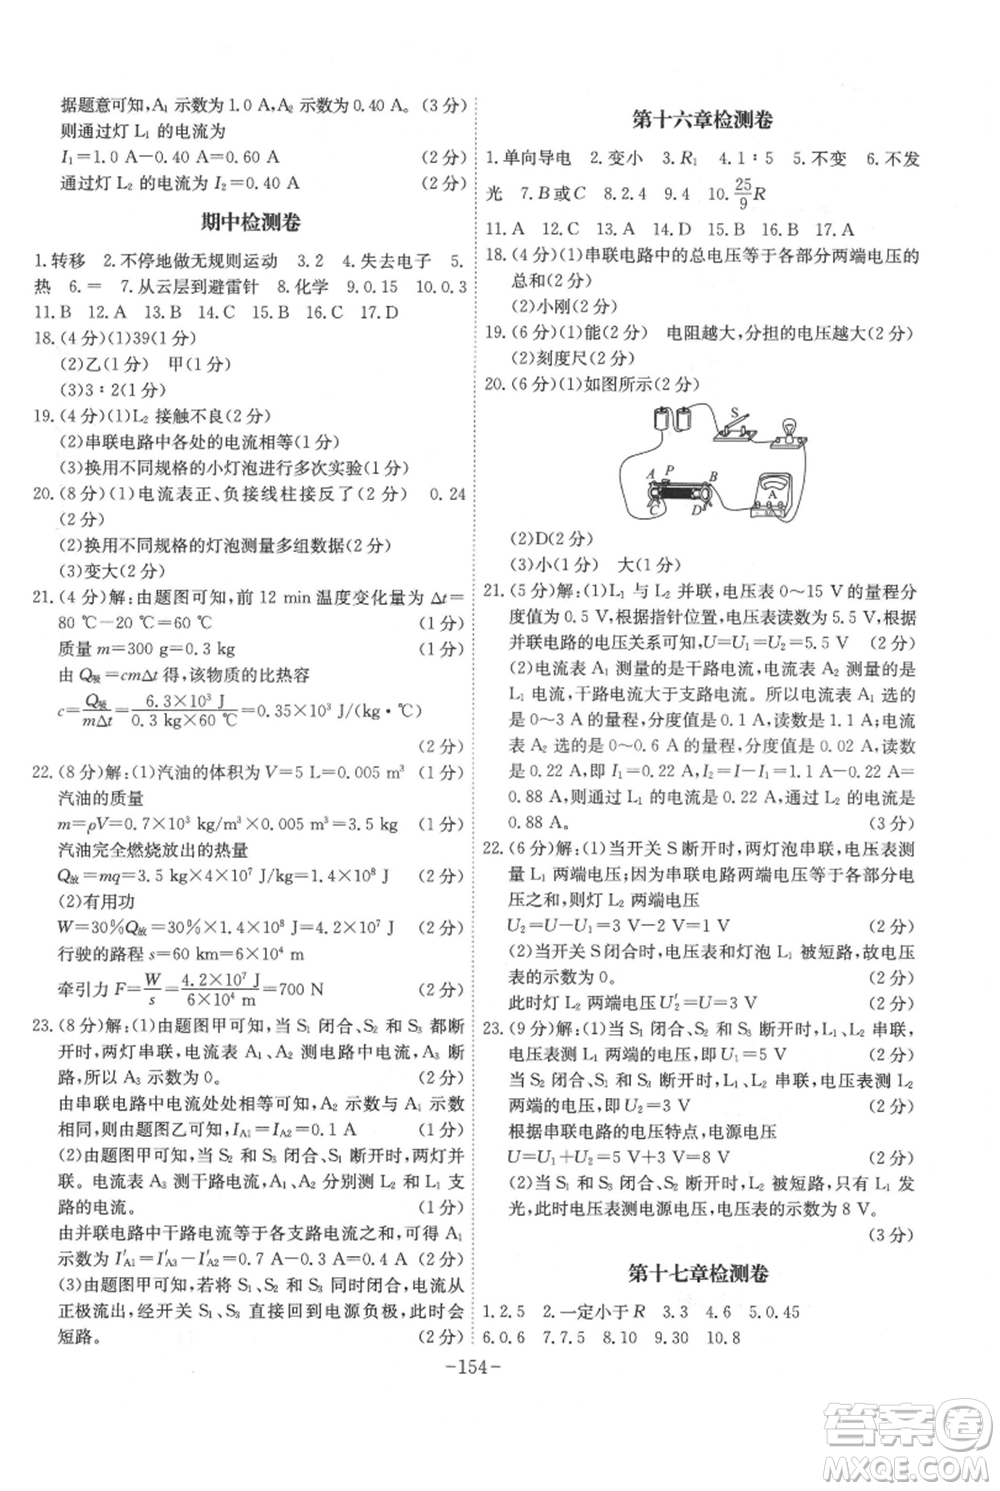 据题意可知,A₁ 示数为 1.0 A,A₂ 示数为 0.40 A。(3 分)
则通过灯 L₁ 的电流为
I₁=1.0 A-0.40 A=0.60 A (2 分)
通过灯 L₂ 的电流为 I₂=0.40 A (2 分)
期中检测卷
1.转移 2.不停地做无规则运动 3.2 4.失去电子 5.
热 6.= 7.从云层到避雷针 8.化学 9.0.15 10.0.3
11.B 12.A 13.B 14.B 15.C 16.C 17.D
18.(4 分)(1)39(1 分)
(2)乙(1 分) 甲(1 分)
(3)3∶2(1 分)
19.(4 分)(1)L₂ 接触不良(2 分)
(2)串联电路中各处的电流相等(1 分)
(3)换用不同规格的小灯泡进行多次实验(1 分)
20.(8 分)(1)电流表正、负接线柱接反了(2 分) 0.24
(2 分)
(2)换用不同规格的灯泡测量多组数据(2 分)
(3)变大(2 分)
21.(4 分)解:由题图可知,前 12 min 温度变化量为 Δt=
80 ℃-20 ℃=60 ℃ (1 分)
质量 m=300 g=0.3 kg (1 分)
由 Q吸=cmΔt 得,该物质的比热容
c=Q吸/mΔt=6.3×10³ J/0.3 kg×60 ℃=0.35×10³ J/(kg·℃)
(2 分)
22.(8 分)解:(1)汽油的体积为 V=5 L=0.005 m³ (1 分)
汽油的质量
m=ρV=0.7×10³ kg/m³×0.005 m³=3.5 kg (1 分)
汽油完全燃烧放出的热量
Q放=mq=3.5 kg×4×10⁷ J/kg=1.4×10⁸ J (2 分)
(2)有用功
W=30%Q放=30%×1.4×10⁸ J=4.2×10⁷ J (2 分)
行驶的路程 s=60 km=6×10⁴ m
牵引力 F=W/s=4.2×10⁷ J/6×10⁴ m=700 N (2 分)
23.(8 分)解:(1)由题图甲可知,当 S₁ 闭合、S₂ 和 S₃ 都断
开时,两灯串联,电流表 A₁、A₂ 测电路中电流,A₃ 断
路,所以 A₃ 示数为 0。 (2 分)
由串联电路中电流处处相等可知,A₂ 示数与 A₁ 示数
相同,则由题图乙可知,IA1=IA2=0.1 A (1 分)
(2)由题图甲可知,当 S₂ 和 S₃ 闭合、S₁ 断开时,两灯并
联,电流表 A₃ 测干路电流,A₁、A₂ 分别测 L₂、L₁ 支
路的电流。 (1 分)
由并联电路中干路电流等于各支路电流之和,可得 A₁
示数为 I′A1=I′A3-I′A2=0.7 A-0.3 A=0.4 A (2 分)
(3)由题图甲可知,若将 S₁ 和 S₃ 同时闭合,电流从
正极流出,经开关 S₁、S₃ 直接回到电源负极,此时会
短路。 (2 分)
第十六章检测卷
1.单向导电 2.变小 3.R₁ 4.1∶5 5.不变 6.不发
光 7.B 或 C 8.2.4 9.4 10.25/9R
11.A 12.C 13.A 14.D 15.D 16.B 17.A
18.(4 分)(1)串联电路中的总电压等于各部分两端电压的
总和(2 分)
(2)小刚(2 分)
19.(6 分)(1)能(2 分) 电阻越大,分担的电压越大(2 分)
(2)刻度尺(2 分)
20.(6 分)(1)如图所示(2 分)
S
A P B
C D
A
(2)D(2 分)
(3)小(1 分) 大(1 分)
21.(5 分)解:(1)L₁ 与 L₂ 并联,电压表 0～15 V 的量程分
度值为 0.5 V,根据指针位置,电压表读数为 5.5 V,根据
并联电路的电压关系可知,U=U₁=U₂=5.5 V (2 分)
(2)电流表 A₁ 测量的是干路电流,电流表 A₂ 测量的是
L₁ 电流,干路电流大于支路电流。所以电流表 A₁ 选的
是 0～3 A 的量程,分度值是 0.1 A,读数是 1.1 A;电流
表 A₂ 选的是 0～0.6 A 的量程,分度值是 0.02 A,读数
是 0.22 A,即 I₁=0.22 A,I₂=I-I₁=1.1 A-0.22 A=
0.88 A,则通过 L₁ 的电流是 0.22 A,通过 L₂ 的电流是
0.88 A。 (3 分)
22.(6 分)解:(1)当开关 S 断开时,两灯泡串联,电压表测
量 L₁ 两端电压;因为串联电路两端电压等于各部分电
压之和,所以 L₂ 两端电压
U₂=U-U₁=3 V-2 V=1 V (2 分)
(2)当开关 S 闭合时,电压表和灯泡 L₁ 被短路,故电压
表的示数为 0。 (2 分)
此时灯 L₂ 两端电压 U′₂=U=3 V (2 分)
23.(9 分)解:(1)当 S₂ 闭合、S₁ 和 S₃ 断开时,L₁、L₂ 串联,
电压表测 L₁ 两端的电压,即 U₁=5 V (2 分)
当 S₂ 闭合、S₁ 和 S₃ 断开时,L₁、L₂ 串联,电压表测 L₂
两端的电压,即 U₂=3 V (2 分)
根据串联电路的电压特点,电源电压
U=U₁+U₂=5 V+3 V=8 V (2 分)
(2)当 S₁ 闭合、S₂ 和 S₃ 断开时,L₂ 被短路,只有 L₁ 发
光,此时电压表测电源电压,电压表的示数为 8 V。
(3 分)
第十七章检测卷
1.2.5 2.一定小于 R 3.3 4.6 5.0.45
6.0.6 7.7.5 8.10 9.30 10.8
-154-
答案圈
MXQE.COM